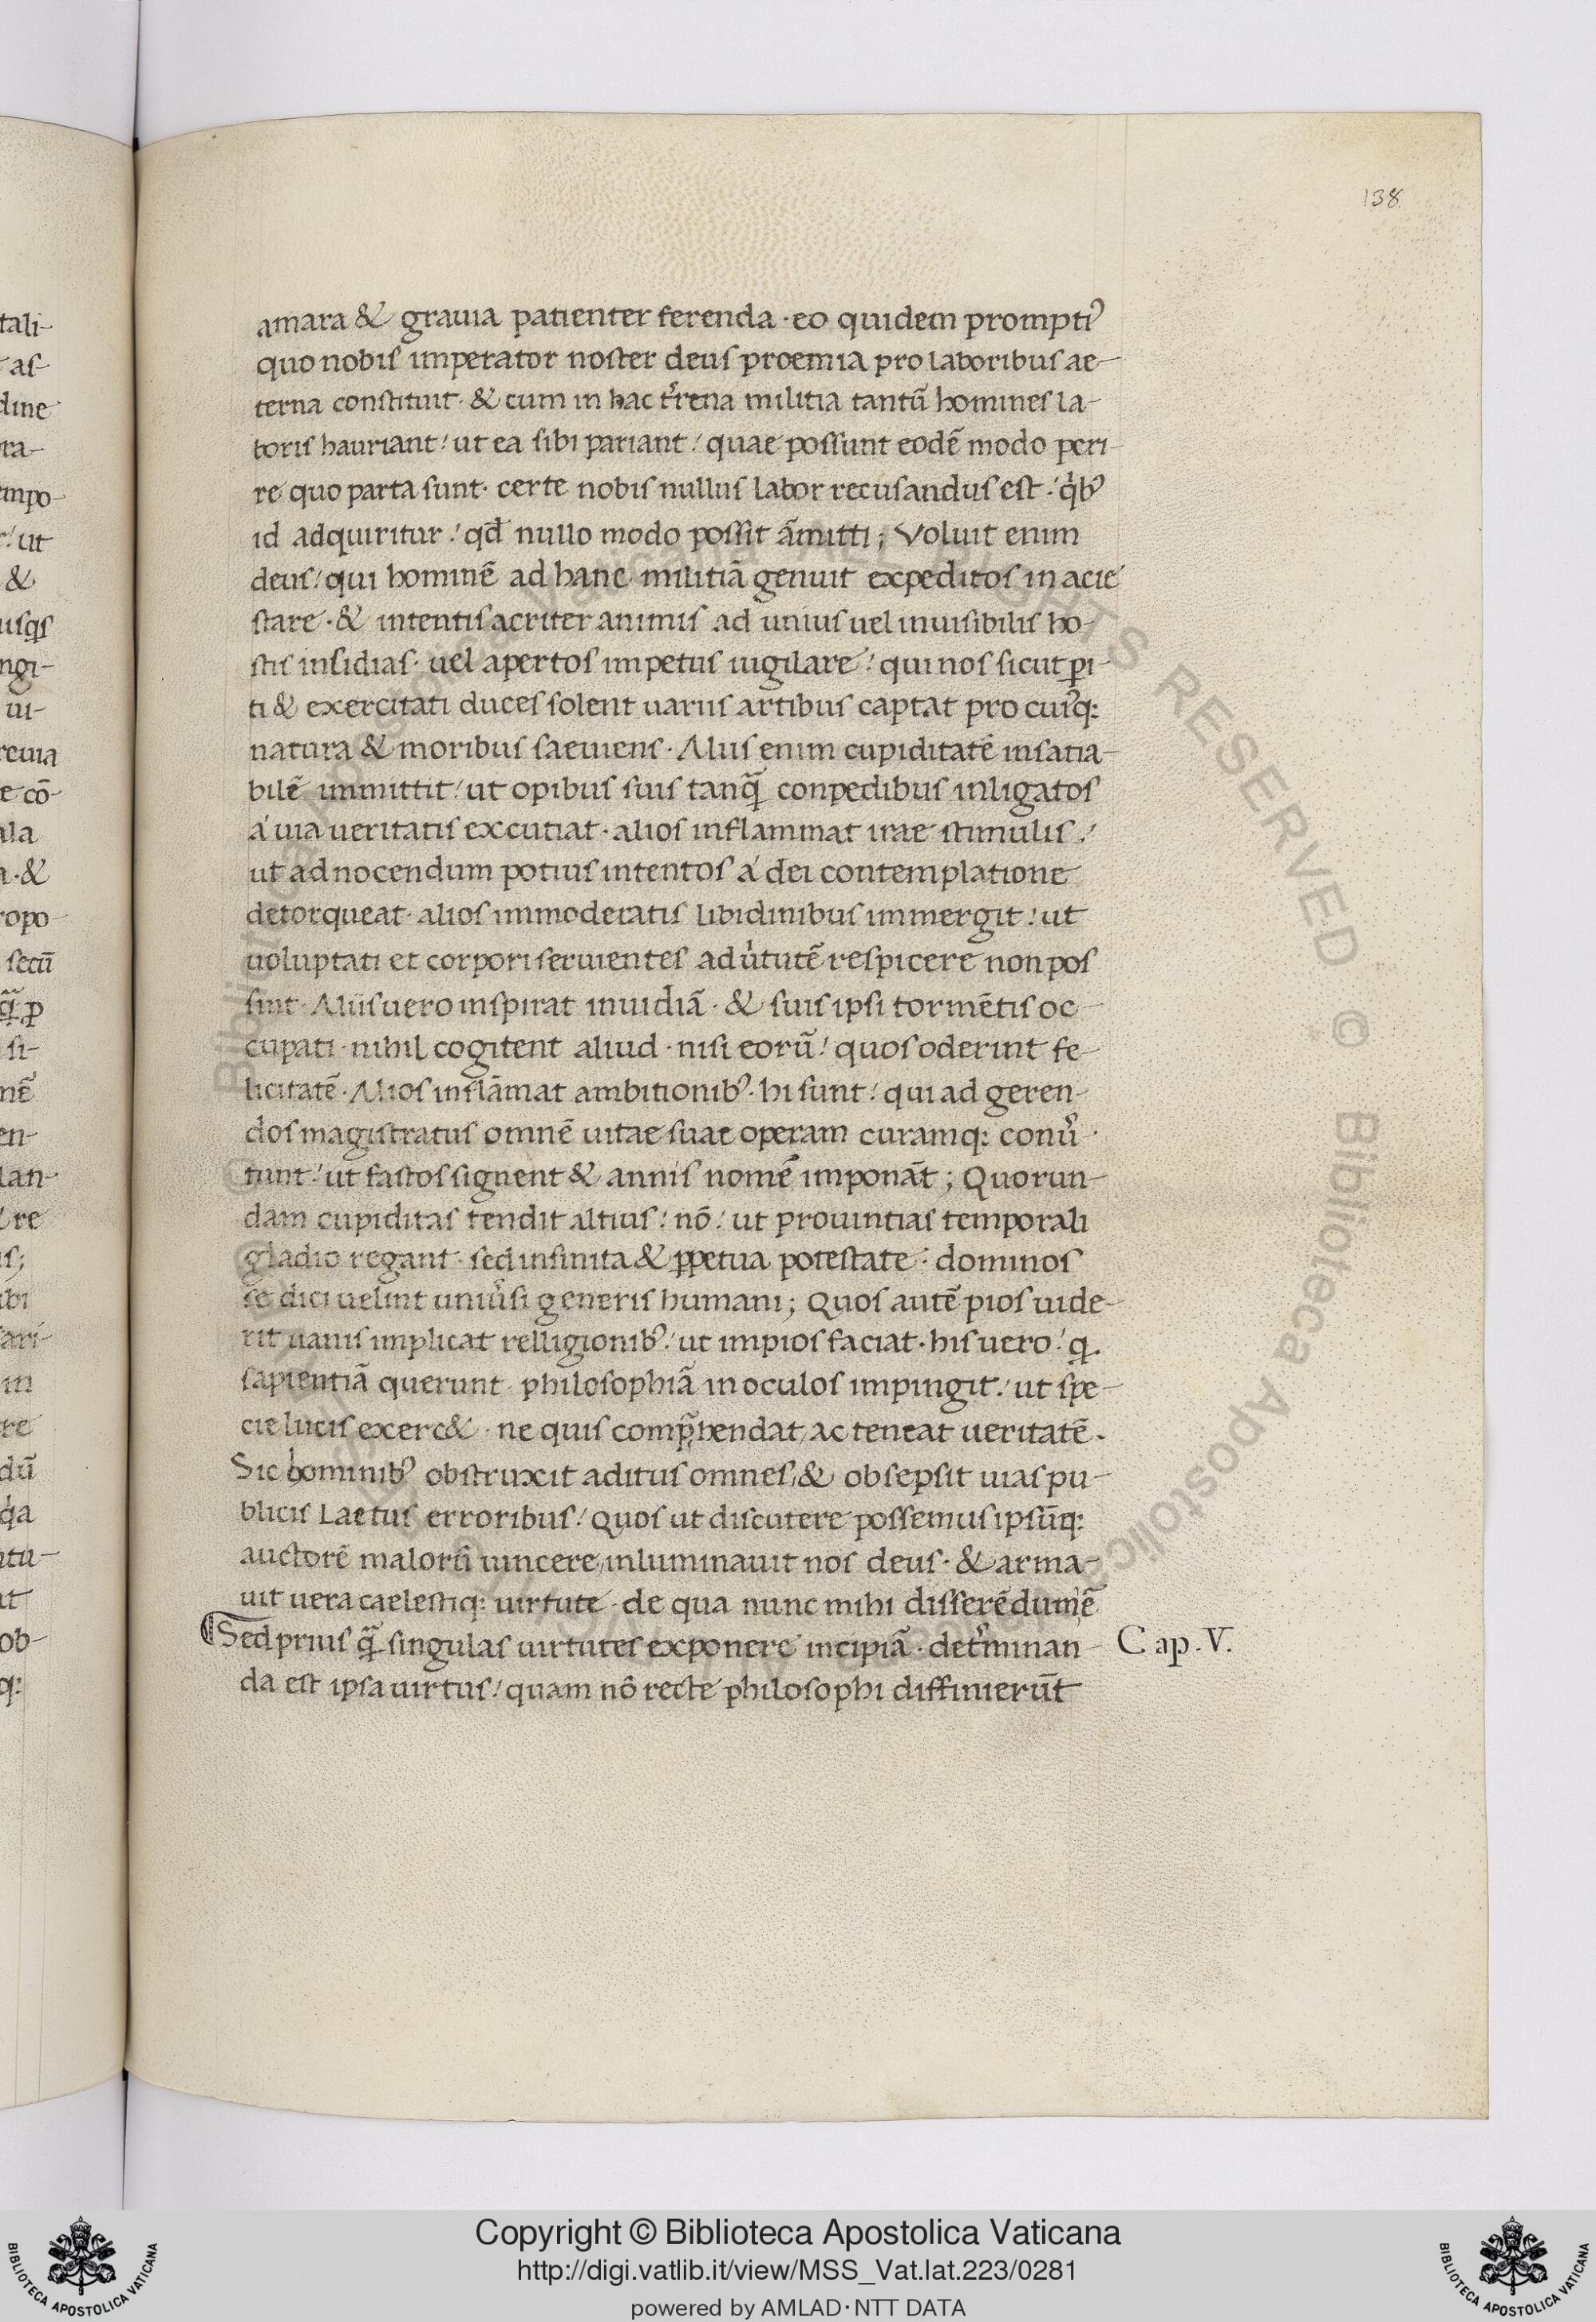 138
amara & grauia patienter ferenda · eo quidem promptiꝰ
quo nobis imperator noster deus proemia pro laboribus ae-
terna constituit · & cum in hac t̓rena militia tantū homines la-
boris hauriant / ut ea sibi pariant / quae possunt eodē modo peri-
re quo parta sunt · certe nobis nullus labor recusandus est / qͥbꝰ
id adquiritur / qd̄ nullo modo possit āmitti ; Voluit enim
deus / qui hominē ad hanc militiā genuit expeditos in acie
stare · & intentis acriter animis ad unius uel inuisibilis ho-
stis insidias · uel apertos impetus uigilare / qui nos sicut ꝑi-
ti & exercitati duces solent uariis artibus captat pro cuiꝰq:
natura & moribus saeuiens · Aliis enim cupiditatē insatia-
bilē immittit / ut opibus suis tanq̄ conpedibus inligatos
á uia ueritatis excutiat · alios inflammat irae stimulis /
ut ad nocendum potius intentos á dei contemplatione
detorqueat · alios immoderatis libidinibus immergit / ut
uoluptati et corpori seruientes ad u̓tutē respicere non pos
sint · Aliis uero inspirat inuidiā · & suis ipsi tormētis oc-
cupati · nihil cogitent aliud · nisi eorū / quos oderint fe-
licitatē · Alios inflāmat ambitionibꝰ · hi sunt / qui ad geren-
dos magistratus omnē uitae suae operam curamq: conu̓-
tunt / ut fastos signent & annis nomē imponāt ; Quorun-
dam cupiditas tendit altius / nō / ut prouintias temporali
gladio regant · sed infinita & ꝑpetua potestate · dominos
se dici uelint uniu̓si generis humani ; Quos autē pios uide-
rit uanis implicat relligionibꝰ / ut impios faciat · his uero / q.
sapientiā querunt · philosophiā in oculos impingit / ut spe-
cie lucis exerc& · ne quis comp̄hendat / ac teneat ueritatē .
Sic hominibꝰ obstruxit aditus omnes / & obsepsit uias pu-
blicis Laetus erroribus / Quos ut discutere possemus ipsūq:
auctorē malorū uincere / inluminauit nos deus · & arma-
uit uera caelestiq: uirtute · de qua nunc mihi disserēdum ē
Sed prius q̄ singulas uirtutes exponere incipiā · det̓minan-
Cap. V.
da est ipsa uirtus / quam nō recte philosophi diffinierūt
Copyright © Biblioteca Apostolica Vaticana
http://digi.vatlib.it/view/MSS_Vat.lat.223/0281
powered by AMLAD·NTT DATA
BIBLIOTECA APOSTOLICA VATICANA
BIBLIOTECA APOSTOLICA VATICANA